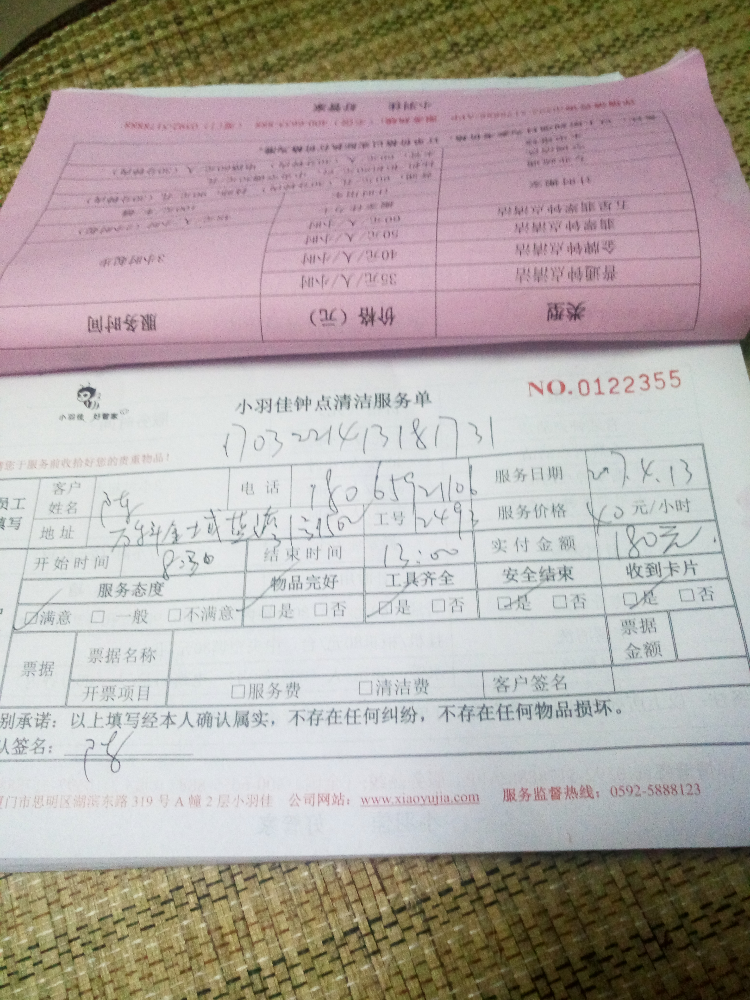 小羽佳 好管家
类型 价格（元） 服务时间
普通钟点清洁 35元/人/小时 3小时起步
金牌钟点清洁 40元/人/小时
翡翠钟点清洁 50元/小时
五星翡翠钟点清洁 60元/小时
计时搬家
小羽佳 好管家
小羽佳钟点清洁服务单
NO.0122355
1703221413181731
客户姓名 陈 电话 18065921106 服务日期 2017.4.13
地址 工号 2493 服务价格 40元/小时
开始时间 8:30 结束时间 13:00 实付金额 180元.
服务态度 物品完好 工具齐全 安全结束 收到卡片
□满意 □一般 □不满意 □是 □否 □是 □否 □是 □否 □是 □否
票据 票据名称 票据金额
开票项目 □服务费 □清洁费 客户签名
别承诺：以上填写经本人确认属实，不存在任何纠纷，不存在任何物品损坏。
认签名： 陈
厦门市思明区湖滨东路319号A幢2层小羽佳 公司网站：www.xiaoyujia.com 服务监督热线：0592-5888123